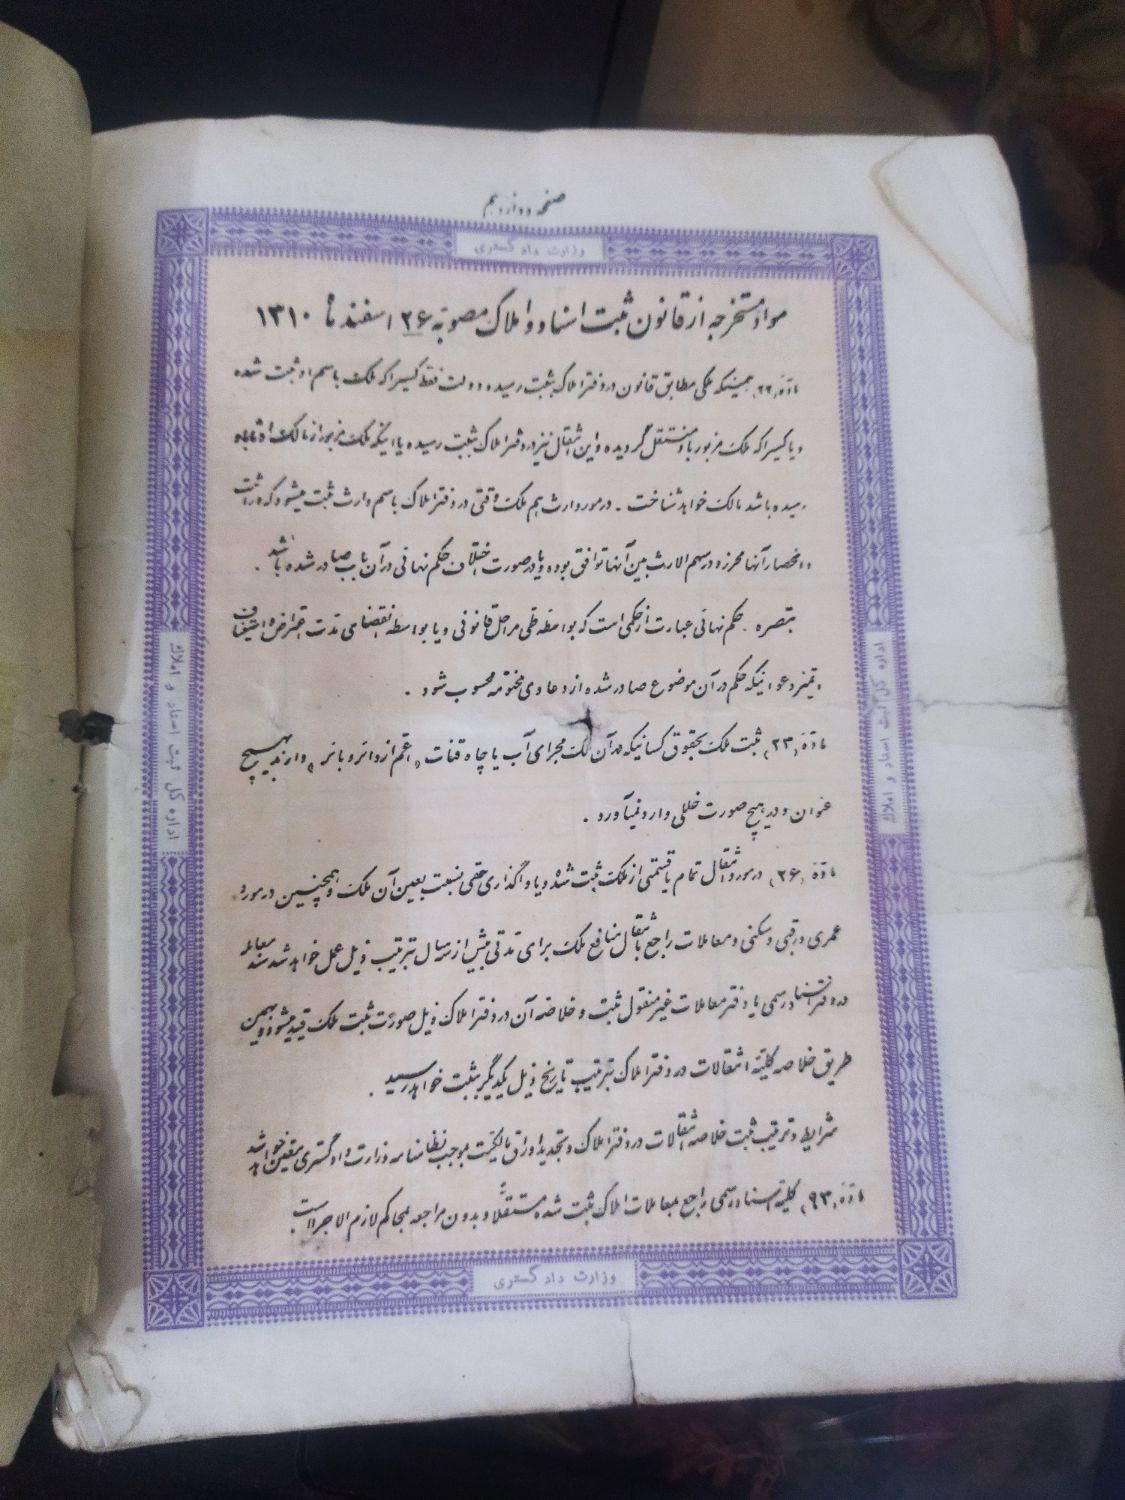 صفحه دوازدهم
وزارت دادگستری
مواد مستخرجه از قانون ثبت اسناد و املاک مصوبه ۲۶ اسفند ماه ۱۳۱۰
ماده (۲۲) همینکه ملکی مطابق قانون در دفتر املاک بثبت رسید دولت فقط کسیرا که ملک باسم او ثبت شده
و یا کسیرا که ملک مزبور باو منتقل گردیده و این انتقال نیز در دفتر املاک بثبت رسیده یا اینکه ملک مزبور از مالک ارثاً باو
رسیده باشد مالک خواهد شناخت - در مورد ارث هم ملک وقتی در دفتر املاک باسم وارث ثبت میشود که وراثت
و انحصار آنها محرز و در سهم الارث بین آنها توافق بوده و یا در صورت اختلاف حکم نهائی در آن باب صادر شده باشد .
تبصره - حکم نهائی عبارت از حکمی است که بواسطه طی مراحل قانونی و یا بواسطه انقضای مدت اعتراض و استیناف
و تمیز دعوائیکه حکم در آن موضوع صادر شده از دعاوی مختومه محسوب شود .
ماده (۲۳) ثبت ملک بحقوق کسانیکه در آن ملک مجرای آب یا چاه قنات (اعم از دایر و بایر) دارند بهیچ
عنوان و در هیچ صورت خللی وارد نمیآورد .
ماده (۲۶) در مورد انتقال تمام یا قسمتی از ملک ثبت شده و یا واگذاری حقی نسبت بعین آن ملک و همچنین در مورد
عمری و رقبی و سکنی و معاملات راجع بانتقال منافع ملک برای مدتی بیش از سه سال بترتیب ذیل عمل خواهد شد معامله
در دفتر اسناد رسمی یا دفتر معاملات غیر منقول ثبت و خلاصه آن در دفتر املاک ذیل صورت ثبت ملک قید میشود و بهمین
طریق خلاصه کلیه انتقالات در دفتر املاک بترتیب تاریخ ذیل یکدیگر بثبت خواهد رسید .
شرایط و ترتیب ثبت خلاصه انتقالات در دفتر املاک و تجدید اوراق مالکیت بموجب نظامنامه وزارت دادگستری معین خواهد شد
ماده (۹۳) کلیه اسناد رسمی راجع بمعاملات املاک ثبت شده مستقلاً و بدون مراجعه بمحاکم لازم الاجراء است
وزارت دادگستری
اداره کل ثبت اسناد و املاک
اداره کل ثبت اسناد و املاک